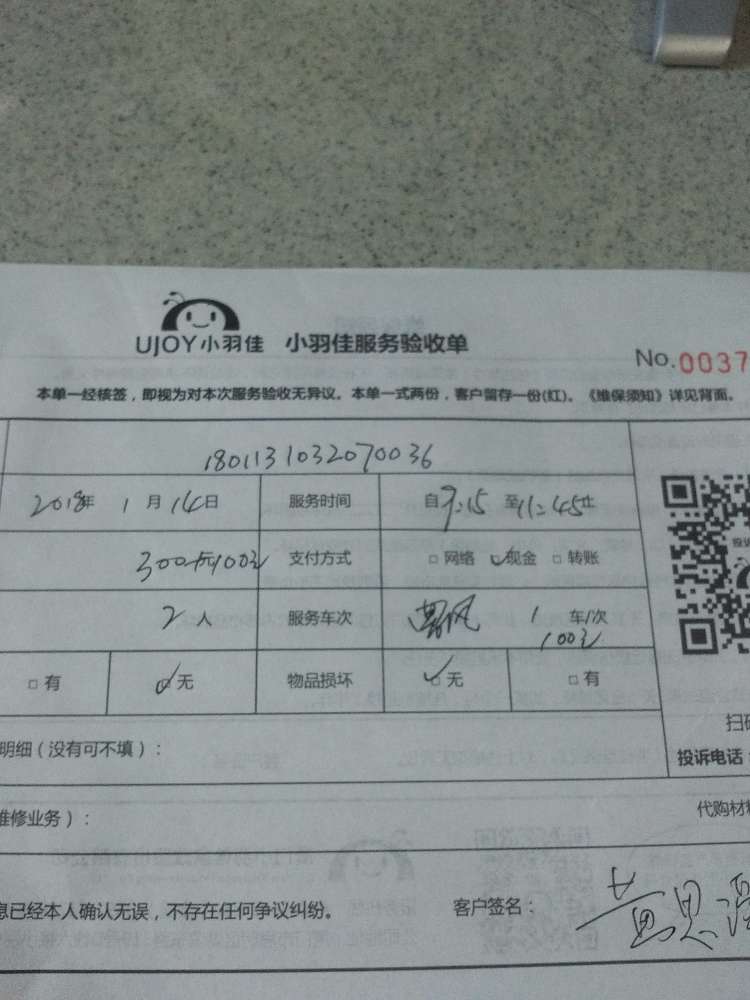 UJOY小羽佳 小羽佳服务验收单
No.0037
本单一经核签，即视为对本次服务验收无异议。本单一式两份，客户留存一份(红)。《维保须知》详见背面。
1801131032070036
2018年 1月14日 服务时间 自9:15 至11:45止
300元+100元 支付方式 □网络 ☑现金 □转账
2人 服务车次 1 车/次
100元
□有 ☑无 物品损坏 ☑无 □有
扫码
明细（没有可不填）： 投诉电话：
代购材料
维修业务）：
息已经本人确认无误，不存在任何争议纠纷。 客户签名：